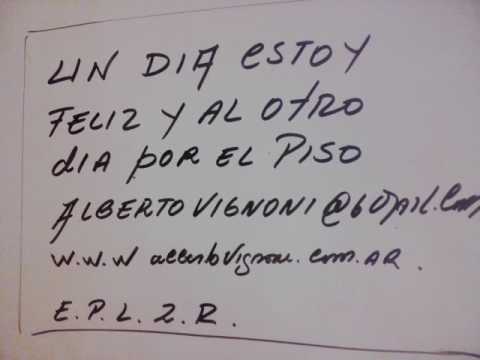 UN DIA ESTOY
FELIZ Y AL OTRO
DIA POR EL PISO
ALBERTOVIGNONI@GMAIL.COM
W.W.W albertovignoni.com.AR.
E.P.L.2.R.